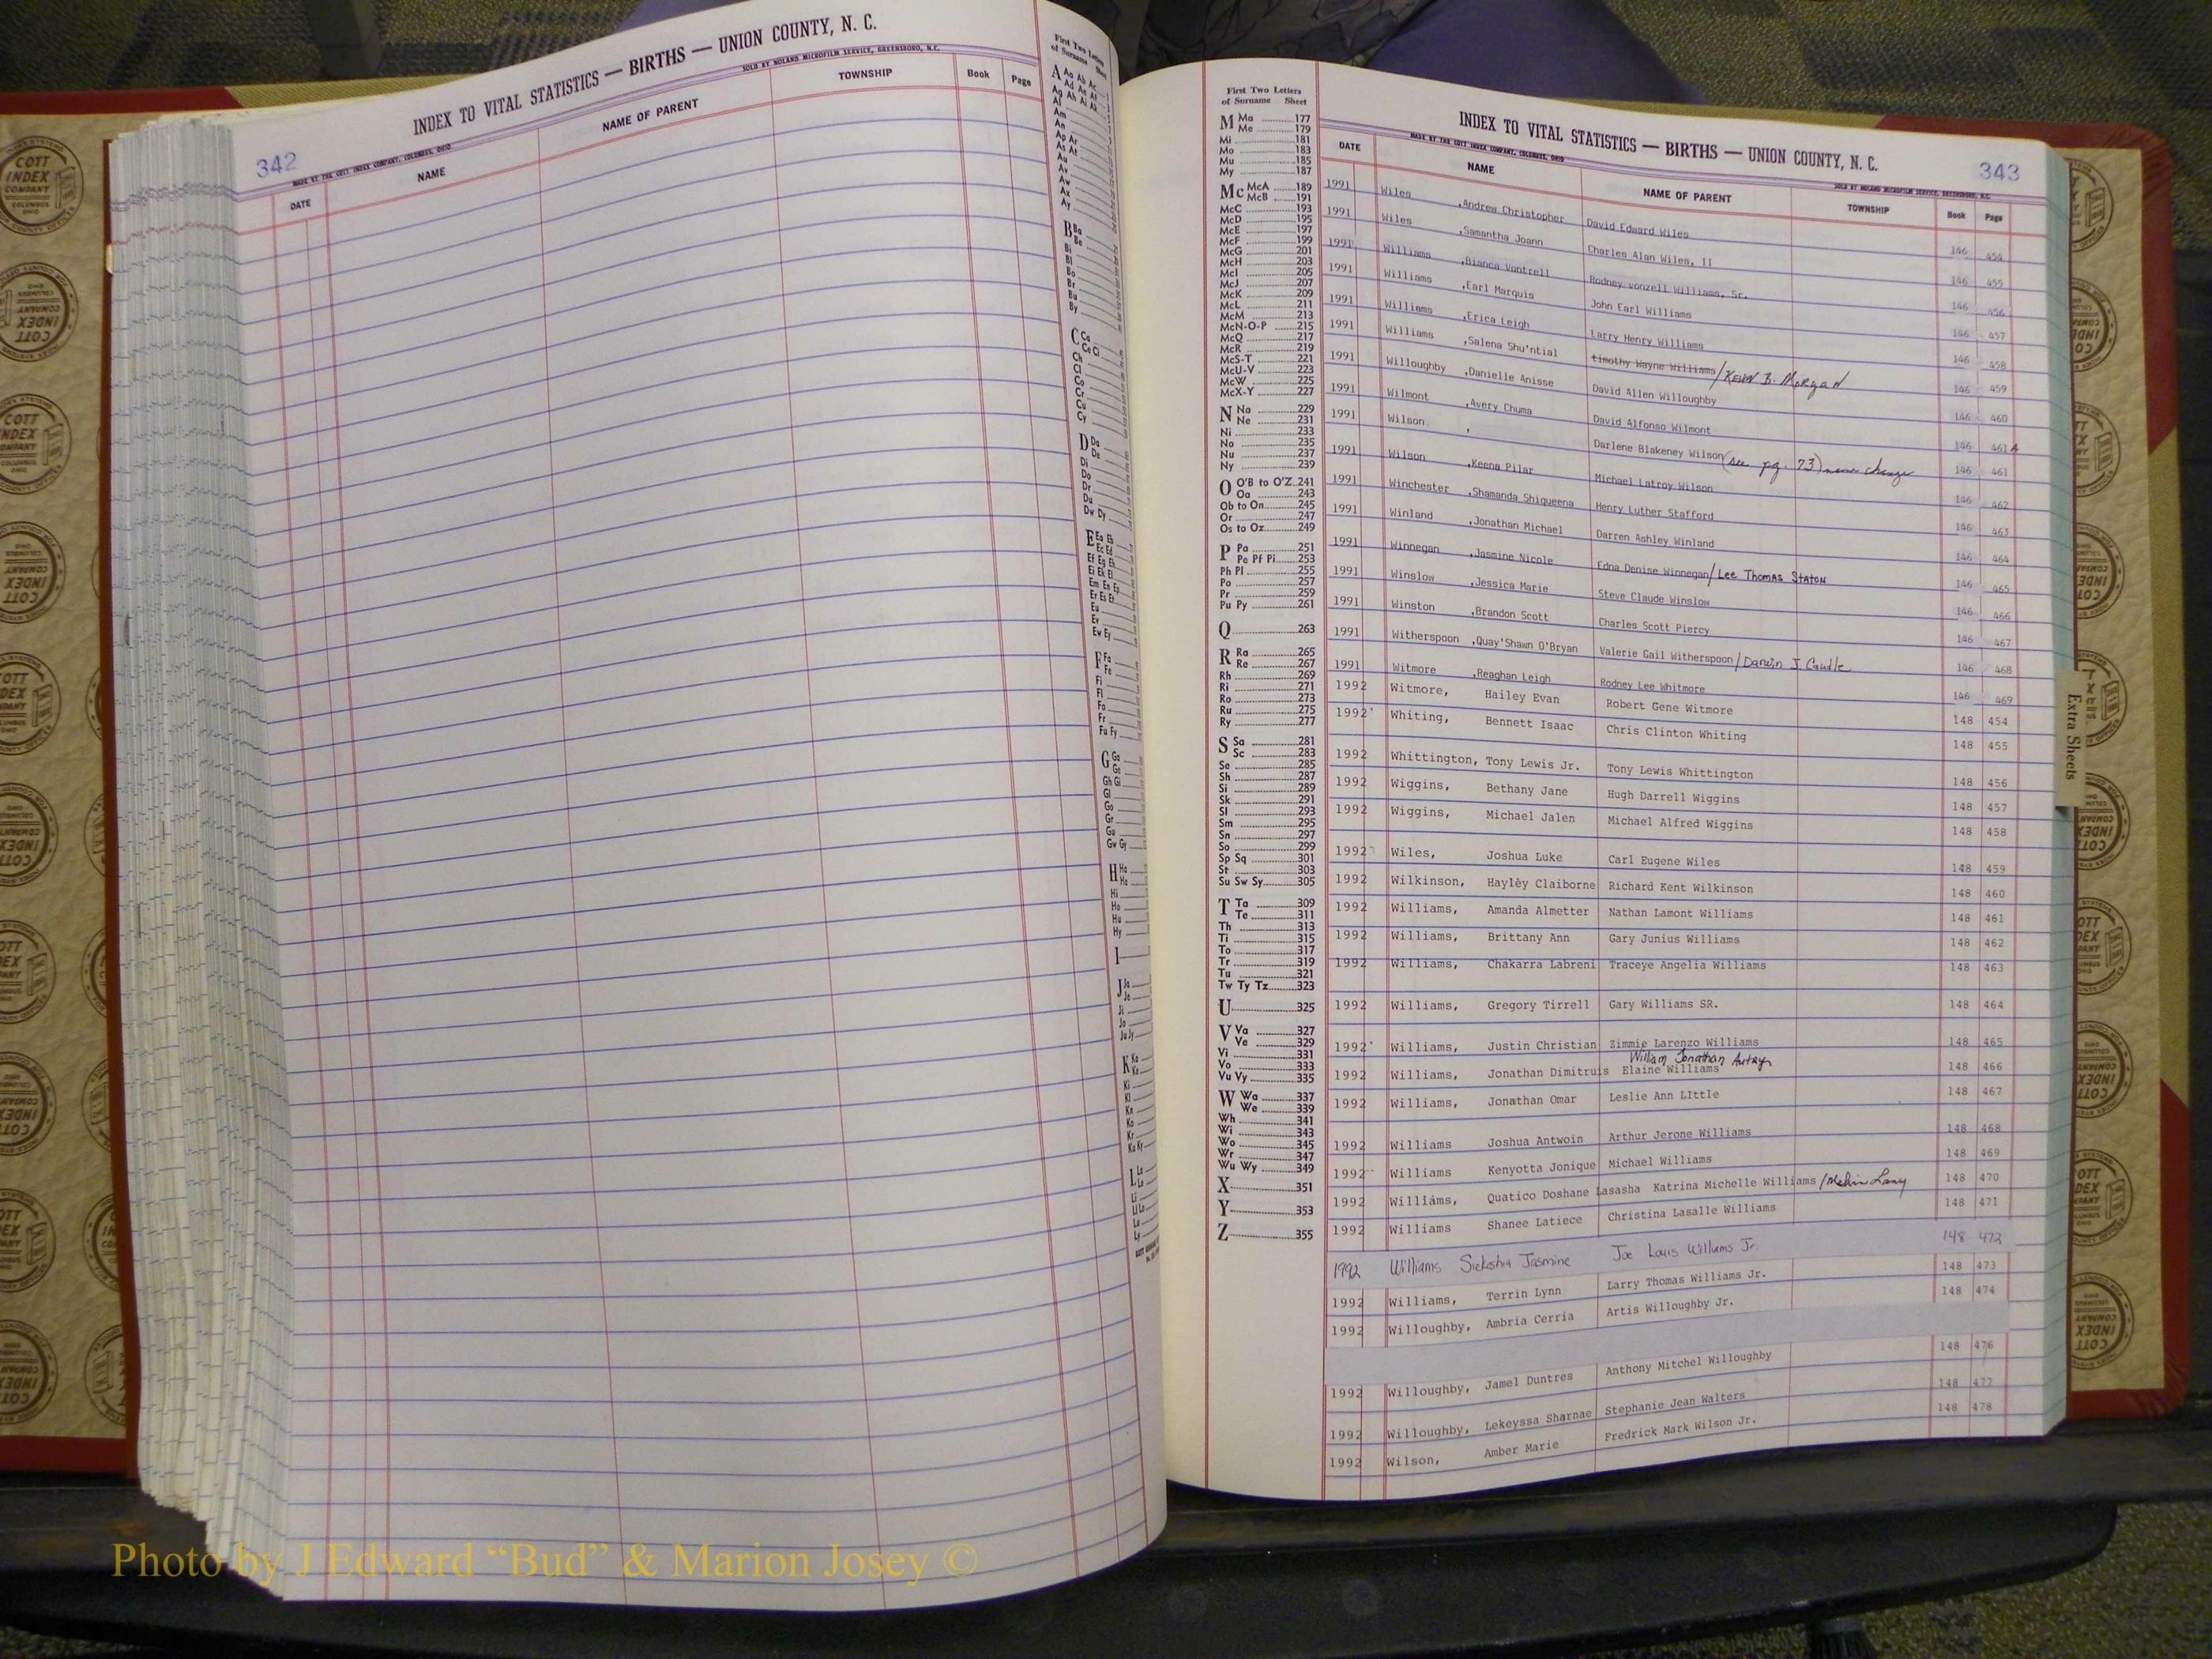 342
INDEX TO VITAL STATISTICS — BIRTHS — UNION COUNTY, N. C.
MADE BY THE COTT INDEX COMPANY, COLUMBUS, OHIO SOLD BY NOLAND MICROFILM SERVICE, GREENSBORO, N.C.
DATE NAME NAME OF PARENT TOWNSHIP Book Page
First Two Letters
of Surname Sheet
First Two Letters
of Surname Sheet
M Ma 177
Me 179
Mi 181
Mo 183
Mu 185
My 187
Mc McA 189
McB 191
McC 193
McD 195
McE 197
McF 199
McG 201
McH 203
McI 205
McJ 207
McK 209
McL 211
McM 213
McN-O-P 215
McQ 217
McR 219
McS-T 221
McU-V 223
McW 225
McX-Y 227
N Na 229
Ne 231
Ni 233
No 235
Nu 237
Ny 239
O O'B to O'Z 241
Oa 243
Ob to On 245
Or 247
Os to Oz 249
P Pa 251
Pe Pf Pi 253
Ph Pl 255
Po 257
Pr 259
Pu Py 261
Q 263
R Ra 265
Re 267
Rh 269
Ri 271
Ro 273
Ru 275
Ry 277
S Sa 281
Sc 283
Se 285
Sh 287
Si 289
Sk 291
Sl 293
Sm 295
Sn 297
So 299
Sp Sq 301
St 303
Su Sw Sy 305
T Ta 309
Te 311
Th 313
Ti 315
To 317
Tr 319
Tu 321
Tw Ty Tz 323
U 325
V Va 327
Ve 329
Vi 331
Vo 333
Vu Vy 335
W Wa 337
We 339
Wh 341
Wi 343
Wo 345
Wr 347
Wu Wy 349
X 351
Y 353
Z 355
INDEX TO VITAL STATISTICS — BIRTHS — UNION COUNTY, N. C.
343
MADE BY THE COTT INDEX COMPANY, COLUMBUS, OHIO SOLD BY NOLAND MICROFILM SERVICE, GREENSBORO, N.C.
DATE NAME NAME OF PARENT TOWNSHIP Book Page
1991 Wiles ,Andrew Christopher David Edward Wiles 146 454
1991 Wiles ,Samantha Joann Charles Alan Wiles, II 146 455
1991 Williams ,Bianca Vontrell Rodney vonzell Williams, Sr. 146 456
1991 Williams ,Earl Marquis John Earl Williams 146 457
1991 Williams ,Erica Leigh Larry Henry Williams 146 458
1991 Williams ,Salena Shu'ntial timothy Wayne Williams/Kevin B. Morgan 146 459
1991 Willoughby ,Danielle Anisse David Allen Willoughby 146 460
1991 Wilmont ,Avery Chuma David Alfonso Wilmont 146 461A
1991 Wilson , Darlene Blakeney Wilson (see pg. 73) name change 146 461
1991 Wilson ,Keena Pilar Michael Latroy Wilson 146 462
1991 Winchester ,Shamanda Shiqueena Henry Luther Stafford 146 463
1991 Winland ,Jonathan Michael Darren Ashley Winland 146 464
1991 Winnegan ,Jasmine Nicole Edna Denise Winnegan/Lee Thomas Staton 146 465
1991 Winslow ,Jessica Marie Steve Claude Winslow 146 466
1991 Winston ,Brandon Scott Charles Scott Piercy 146 467
1991 Witherspoon ,Quay'Shawn O'Bryan Valerie Gail Witherspoon/Darwin J. Caudle 146 468
1991 Witmore ,Reaghan Leigh Rodney Lee Whitmore 146 469
1992 Witmore, Hailey Evan Robert Gene Witmore 148 454
1992 Whiting, Bennett Isaac Chris Clinton Whiting 148 455
1992 Whittington, Tony Lewis Jr. Tony Lewis Whittington 148 456
1992 Wiggins, Bethany Jane Hugh Darrell Wiggins 148 457
1992 Wiggins, Michael Jalen Michael Alfred Wiggins 148 458
1992 Wiles, Joshua Luke Carl Eugene Wiles 148 459
1992 Wilkinson, Hayley Claiborne Richard Kent Wilkinson 148 460
1992 Williams, Amanda Almetter Nathan Lamont Williams 148 461
1992 Williams, Brittany Ann Gary Junius Williams 148 462
1992 Williams, Chakarra Labreni Traceye Angelia Williams 148 463
1992 Williams, Gregory Tirrell Gary Williams SR. 148 464
1992 Williams, Justin Christian Zimmie Larenzo Williams 148 465
William Jonathan Autry
1992 Williams, Jonathan Dimitruis Elaine Williams 148 466
1992 Williams, Jonathan Omar Leslie Ann LIttle 148 467
1992 Williams Joshua Antwoin Arthur Jerone Williams 148 468
1992 Williams Kenyotta Jonique Michael Williams 148 469
1992 Williams, Quatico Doshane Lasasha Katrina Michelle Williams / Melvin 148 470
1992 Williams Shanee Latiece Christina Lasalle Williams 148 471
1992 Williams Siekeshia Jasmine Joe Louis Williams Jr. 148 472
1992 Williams, Terrin Lynn Larry Thomas Williams Jr. 148 473
1992 Willoughby, Ambria Cerria Artis Willoughby Jr. 148 474
1992 Willoughby, Jamel Duntres Anthony Mitchel Willoughby 148 476
1992 Willoughby, Lekeyssa Sharnae Stephanie Jean Walters 148 477
1992 Wilson, Amber Marie Fredrick Mark Wilson Jr. 148 478
Extra Sheets
Photo by J Edward “Bud” & Marion Josey ©